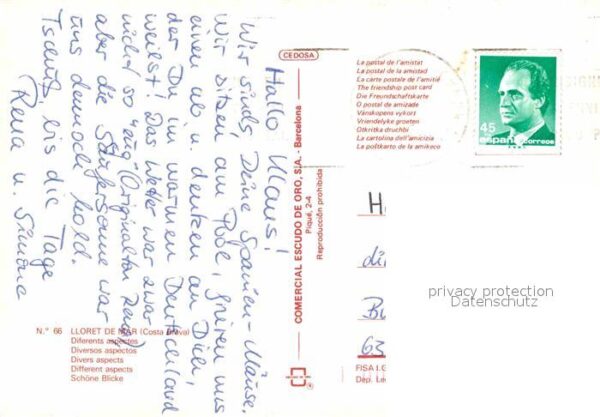 Hallo Klaus!
Wir sind's, Deine Spanien-Mäuse.
Wir sitzen am Pool, grüßen uns
einen ab, u. denken an Dich,
der Du im warmen Deutschland
weilst! Das Wetter war zwar
nicht so "eng (Originalton Rena)
aber die Sonne war
uns dennoch hold.
Tschüß, bis die Tage
Rena u. Simone
CEDOSA
COMERCIAL ESCUDO DE ORO, S.A. - Barcelona
Piqué, 2-4
Reproducción prohibida
La postal de l'amistat
La postal de la amistad
La carte postale de l'amitié
The friendship post card
Die Freundschaftskarte
O postal de amizade
Vänskapens vykort
Vriendelyke groeten
Otkritka druchbi
La cartolina dell'amicizia
La poŝtkarto de la amikeco
45
españa correos
H
di
Bu
63
privacy protection
Datenschutz
N.º 66 LLORET DE MAR (Costa Brava)
Diferents aspectes
Diversos aspectos
Divers aspects
Different aspects
Schöne Blicke
FISA I.G
Dep. Le